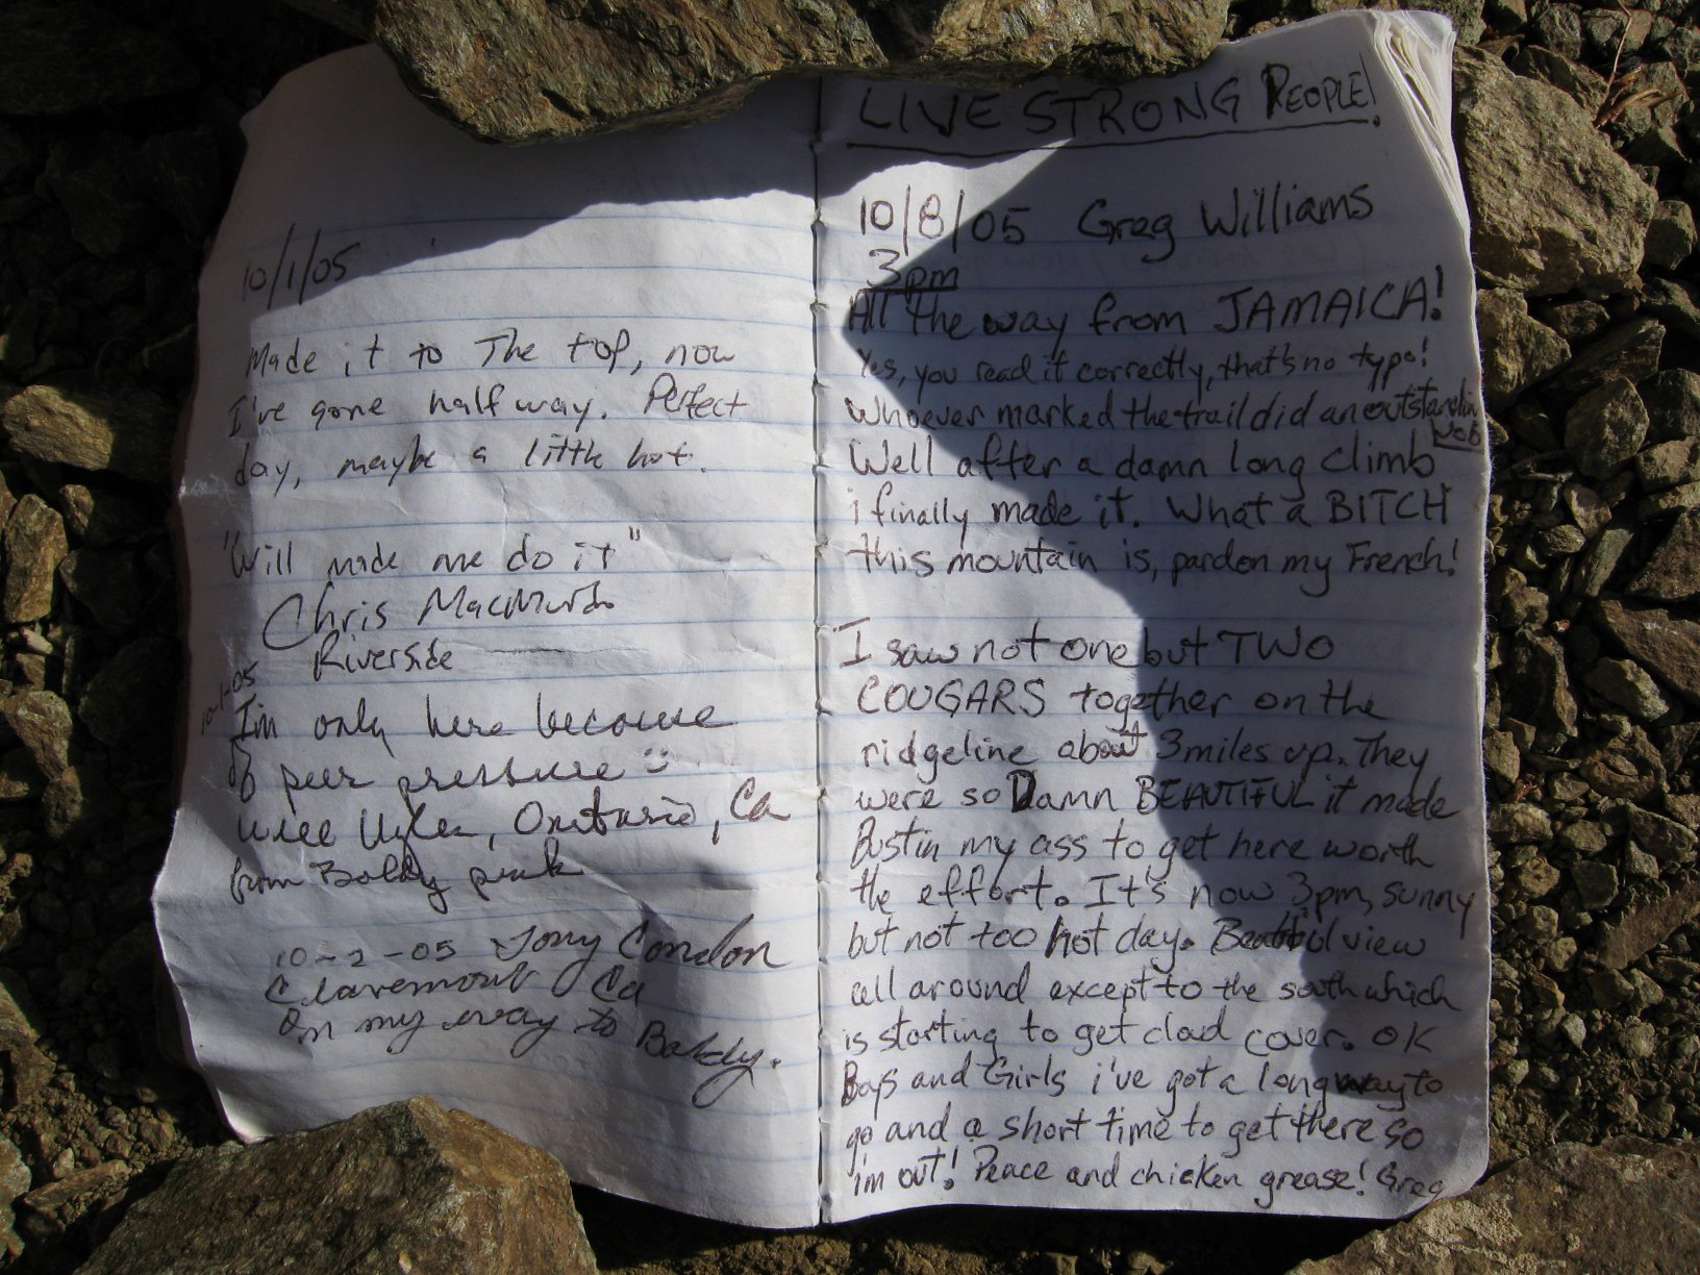 10/1/05
Made it to The top, now
I've gone half way. Perfect
day, maybe a little hot.
"Will made me do it"
Chris
Riverside
10-1-05
I'm only here because
of peer pressure
Will Ontario, Ca
from Baldy peak
10-2-05 Tony Condon
Claremont Ca
On my way to Baldy.
LIVE STRONG PEOPLE!
10/8/05 Greg Williams
3pm
All the way from JAMAICA!
Yes, you read it correctly, that's no typo!
Whoever marked the trail did an outstandin
Job
Well after a damn long climb
i finally made it. What a BITCH
this mountain is, pardon my French!
I saw not one but TWO
COUGARS together on the
ridgeline about 3 miles up. They
were so Damn BEAUTIFUL it made
Bustin my ass to get here worth
the effort. It's now 3pm, sunny
but not too hot day. Beautiful view
all around except to the south which
is starting to get cloud cover. OK
Boys and Girls i've got a long way to
go and a short time to get there so
i'm out! Peace and chicken grease! Greg